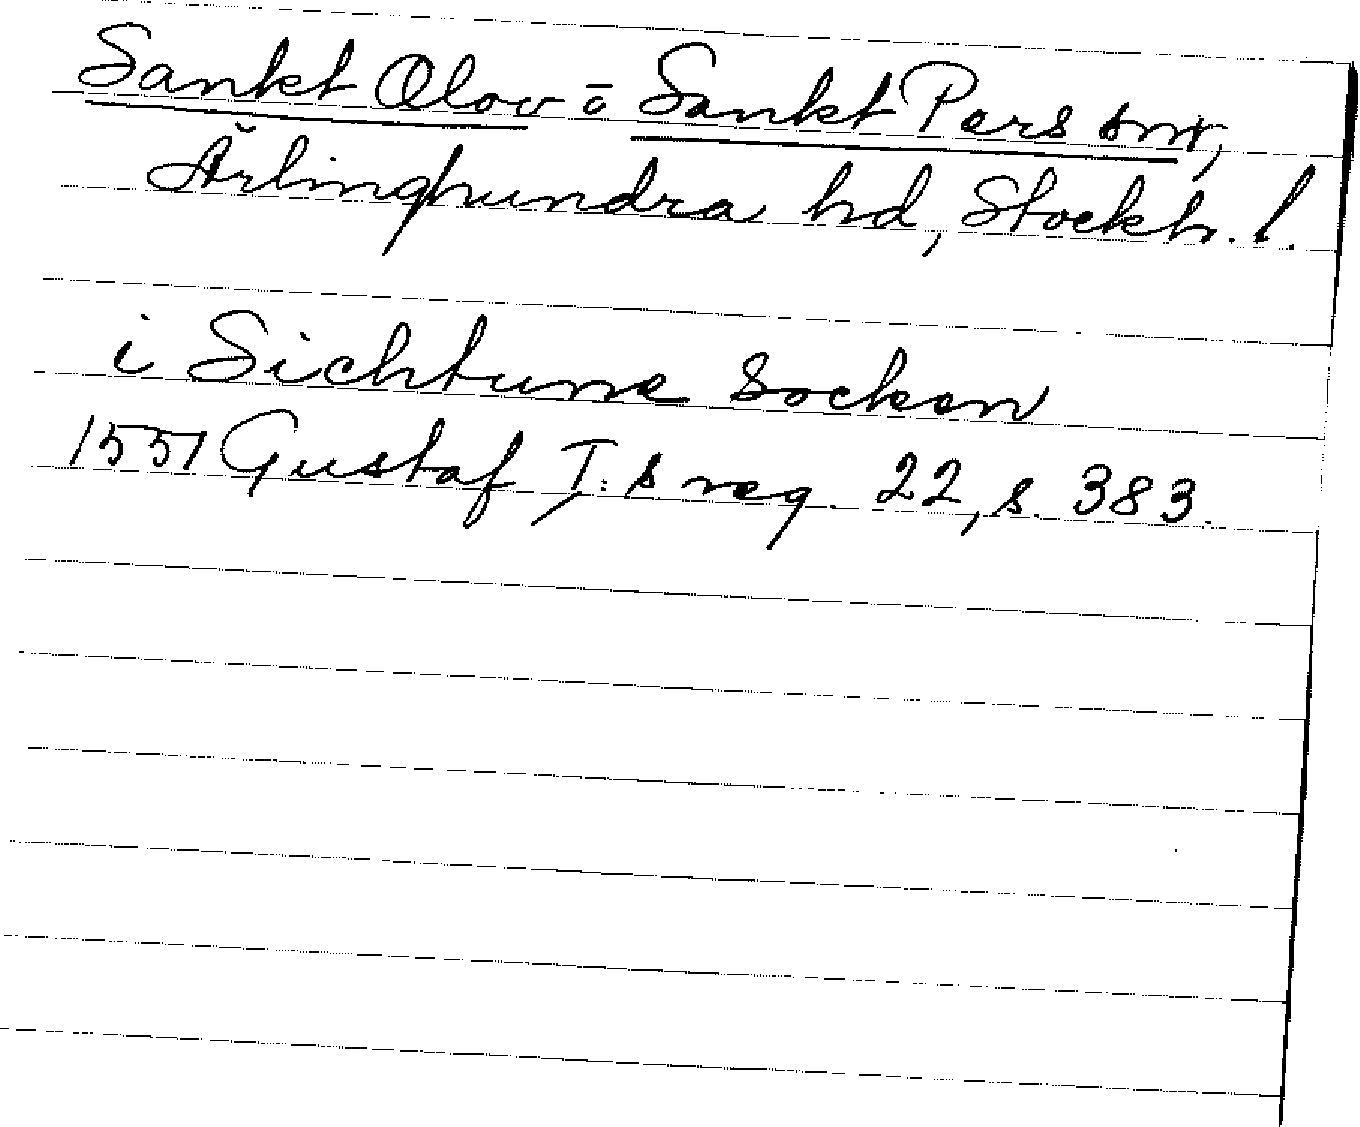 Sankt Olov o Sankt Pers snr,
Ärlinghundra hd, Stockh. l.
i Sichtune Socken
1551 Gustaf I:s reg. 22, s. 383.